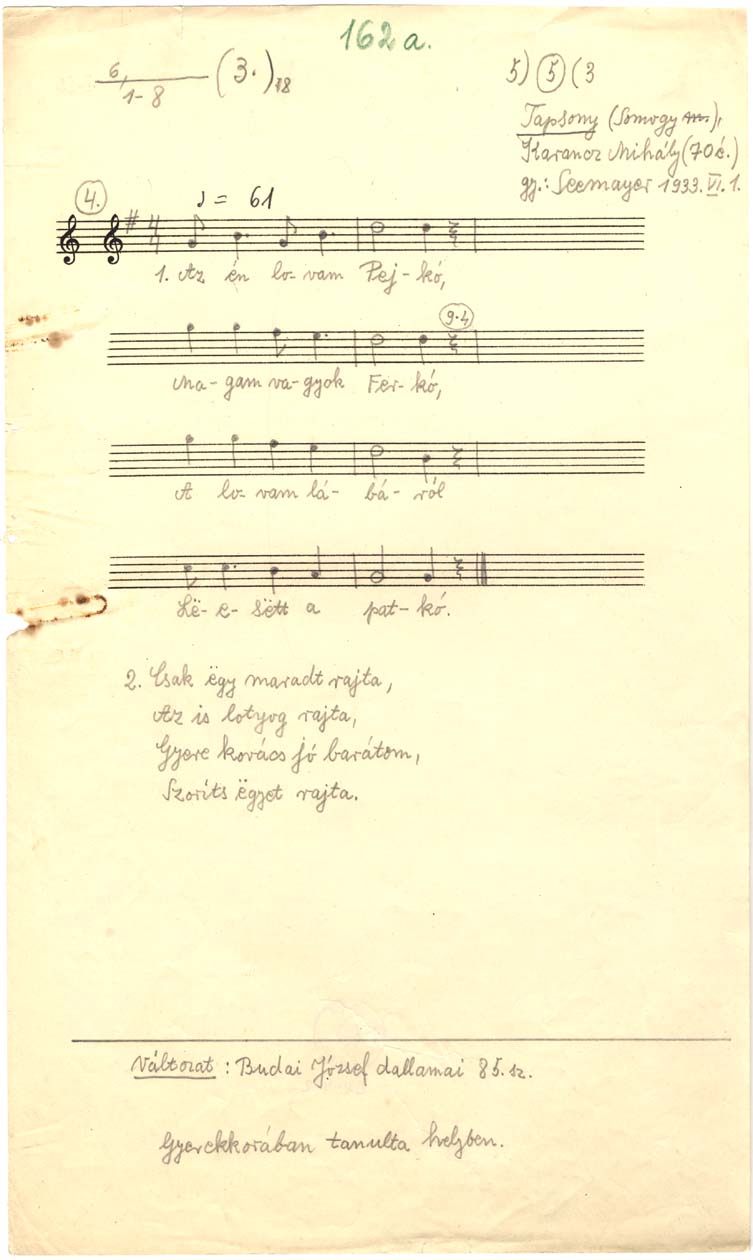 162 a.
6/1-8 (3.)18
5) (5) (3
Tapsony (Somogy m.),
Karancz Mihály (70 é.)
gy.: Seemayer 1933. VI. 1.
4.
♩ = 61
1. Az én lo- vam Pej- kó,
9.4
Ma- gam va- gyok Fer- kó,
A lo- vam lá- bá- ról
Lë- e- sëtt a pat- kó.
2. Csak ëgy maradt rajta,
Az is lotyog rajta,
Gyere kovács jó barátom,
Szoríts ëgyet rajta.
Változat : Budai József dallamai 85. sz.
Gyerekkorában tanulta helyben.